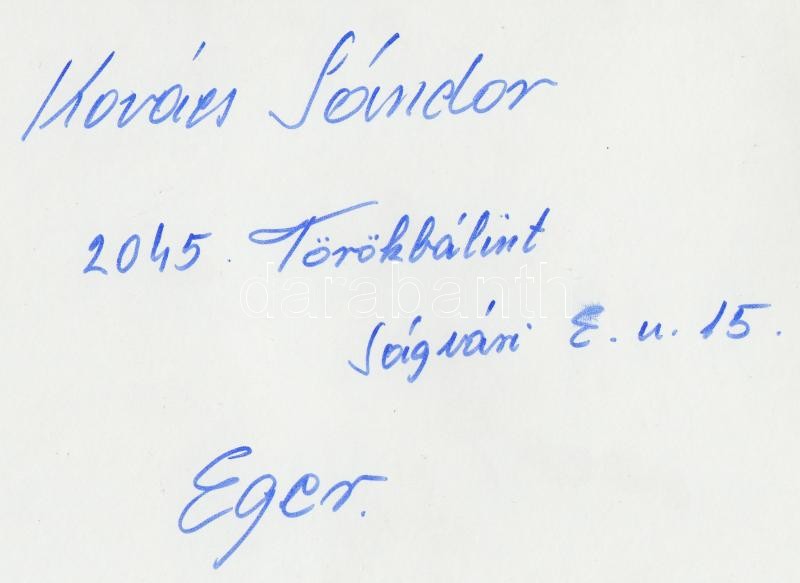 Kovács Sándor
2045. Törökbálint
darabanth
Ságvári E. u. 15.
Eger.